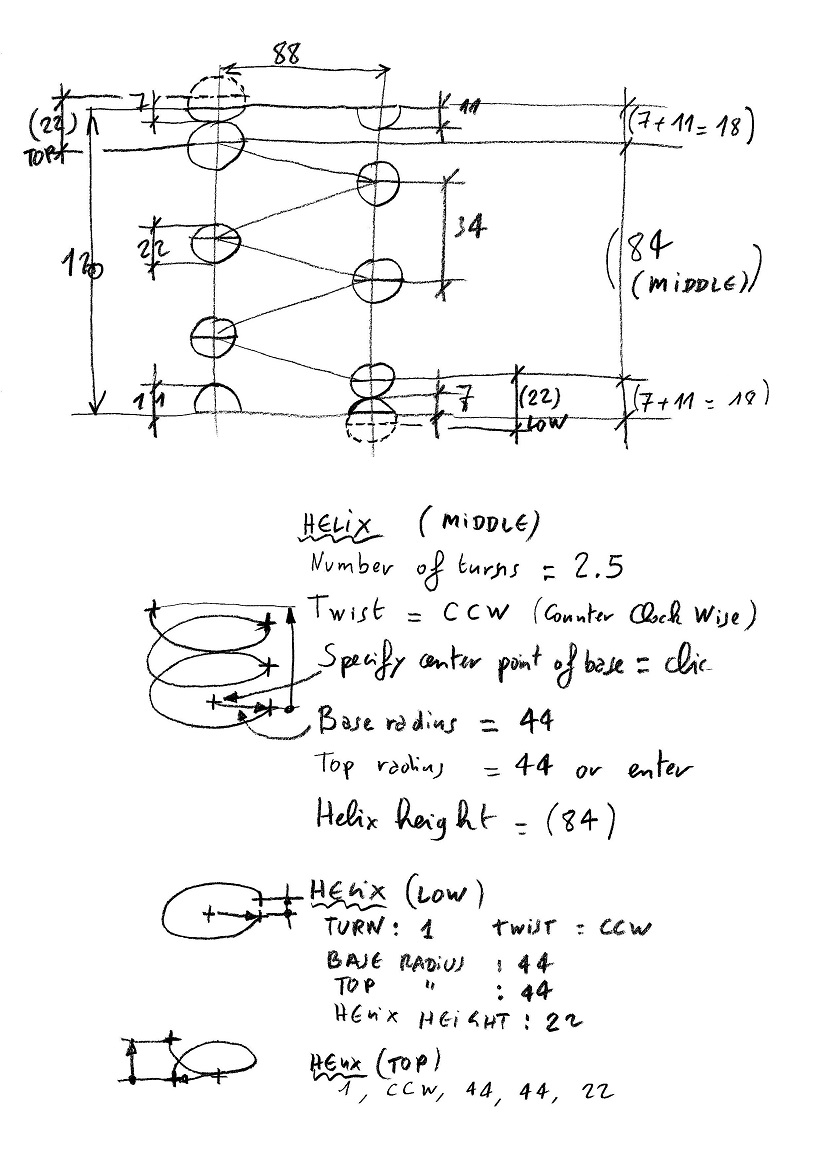 88
7
11
(22)
TOP
(7+11=18)
34
22
120
(84
(MIDDLE))
11
7
(22)
LOW
(7+11 = 18)
HELIX (MIDDLE)
Number of turns = 2.5
Twist = CCW (Counter Clock Wise)
Specify center point of base = clic
Base radius = 44
Top radius = 44 or enter
Helix height = (84)
HELIX (LOW)
TURN: 1 TWIST = CCW
BASE RADIUS : 44
TOP " : 44
HELIX HEIGHT : 22
HELIX (TOP)
1, CCW, 44, 44, 22